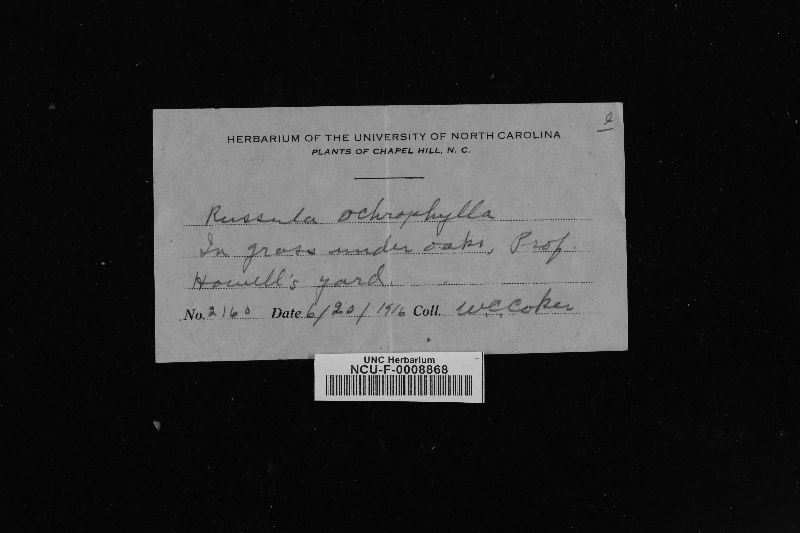 HERBARIUM OF THE UNIVERSITY OF NORTH CAROLINA
PLANTS OF CHAPEL HILL, N. C.
Russula ochrophylla
In grass under oaks, Prof.
Howell's yard.
No. 2160 Date 6/20/1916 Coll. W.C. Coker
UNC Herbarium
NCU-F-0008868